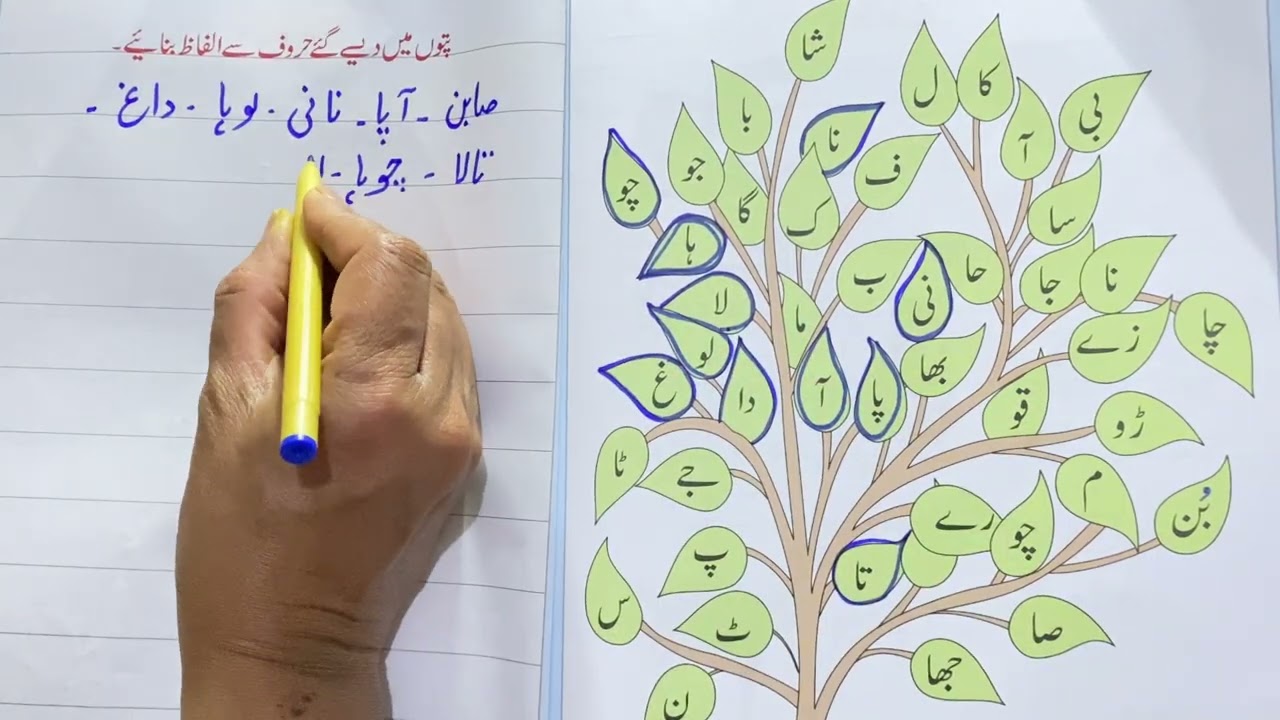 پتوں میں دیے گئے حروف سے الفاظ بنائیے۔
صابن ۔ آپا ۔ نانی ۔ لوہا ۔ داغ ۔
تالا ۔ چوہا ۔
شا
با
نا
ل
کا
آ
بی
چو
جو
گا
ک
ف
سا
ہا
لا
ما
ب
نی
حا
جا
نا
چا
لو
غ
دا
آ
پا
بھا
زے
قو
ڑو
ٹا
جے
م
بُن
رے
چو
پ
تا
س
ٹ
صا
جھا
ن